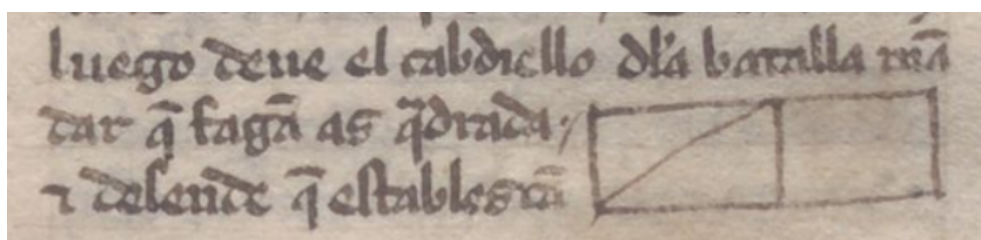 luego deue el cabdiello dl'a batalla mã
dar q̃ fagã as q̃drada.
⁊ delende q̃ establesçã